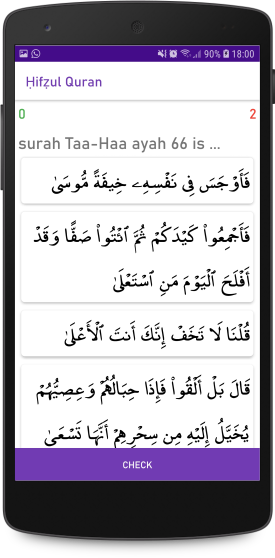 90% 18:00
Ḥifẓul Quran
0 2
surah Taa-Haa ayah 66 is ...
فَأَوْجَسَ فِى نَفْسِهِۦ خِيفَةً مُّوسَىٰ
فَأَجْمِعُوا۟ كَيْدَكُمْ ثُمَّ ٱئْتُوا۟ صَفًّا وَقَدْ
أَفْلَحَ ٱلْيَوْمَ مَنِ ٱسْتَعْلَىٰ
قُلْنَا لَا تَخَفْ إِنَّكَ أَنتَ ٱلْأَعْلَىٰ
قَالَ بَلْ أَلْقُوا۟ فَإِذَا حِبَالُهُمْ وَعِصِيُّهُمْ
يُخَيَّلُ إِلَيْهِ مِن سِحْرِهِمْ أَنَّهَا تَسْعَىٰ
CHECK